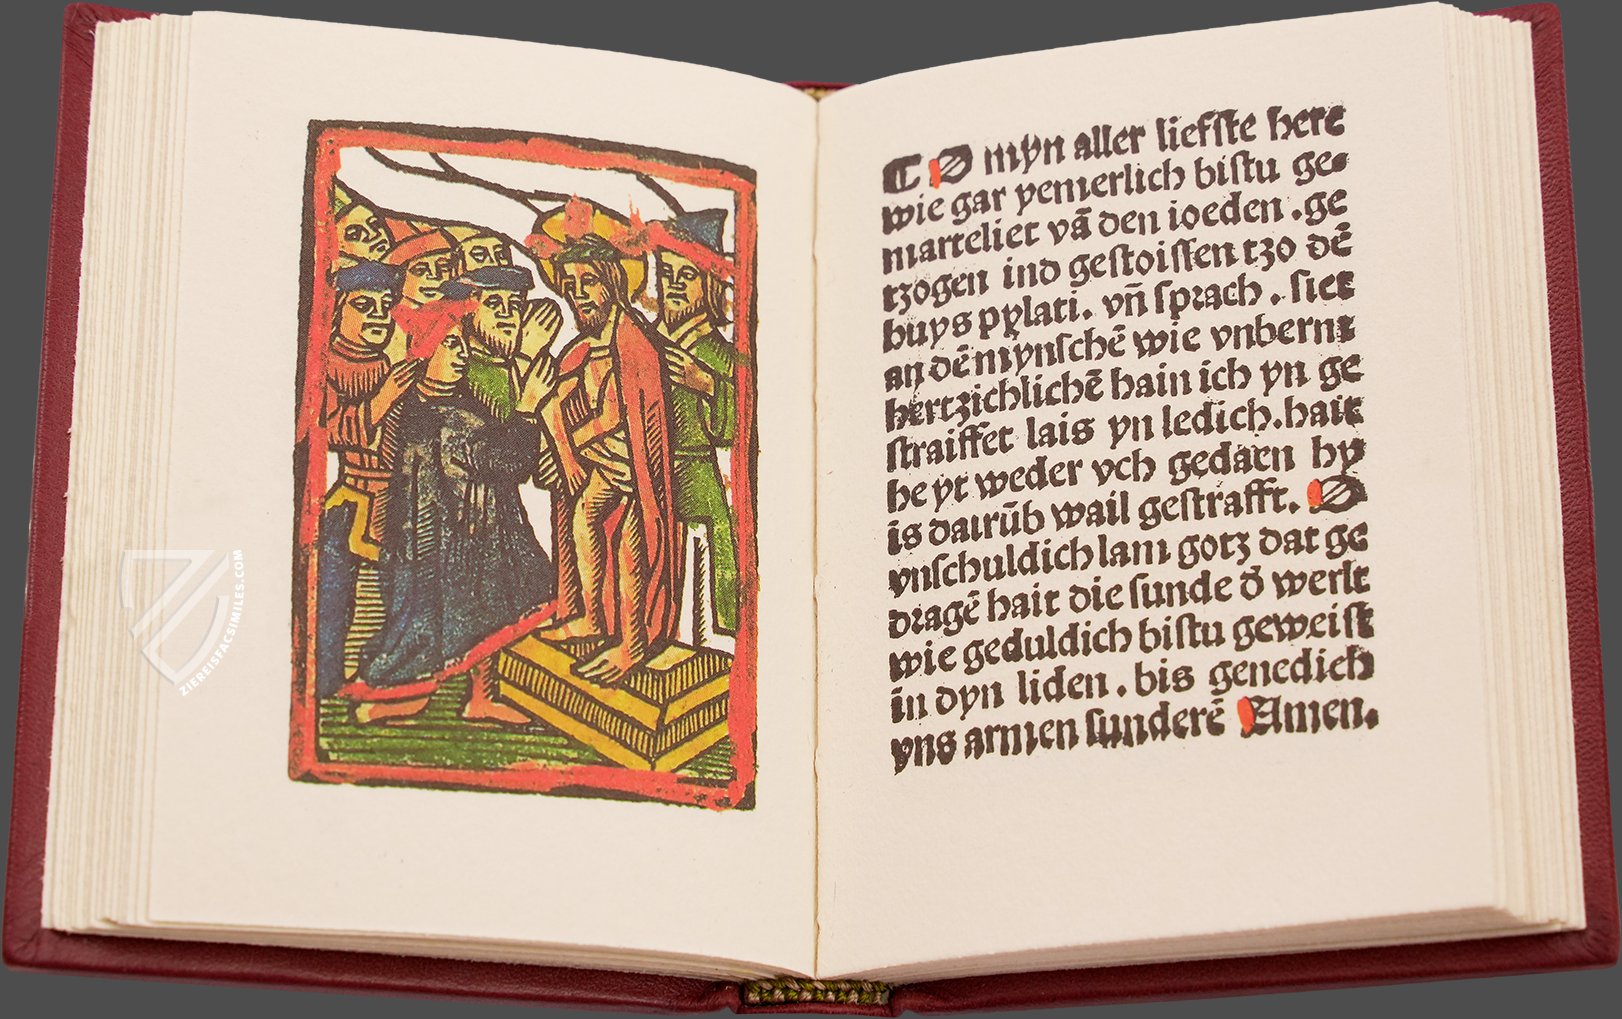 ZIEREISFACSIMILES.COM
⸿ O mÿn aller liefſte here
wie gar yemerlich biſtu ge⸗
marteliet vā den ioeden .ge
tzogen ind geſtoiſſen tzo dē
huys pylati. vn̄ ſprach . ſiet
an dē mynſchē wie vnbermt
hertzichlichē hain ich yn ge
ſtraiffet lais yn ledich.hait
he yt weder vch gedaen hy
is dairūb wail geſtrafft. O
vnſchuldich lam gotz dat ge
dragē hait die ſunde d̄ werlt
wie geduldich biſtu geweiſt
in dyn liden . bis genedich
vns armen ſunderē Amen.